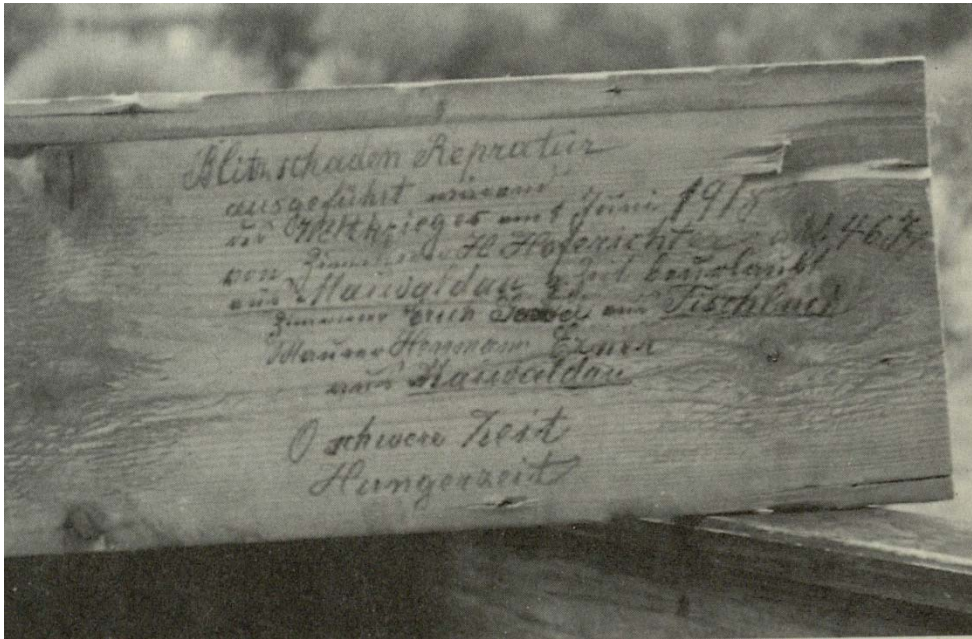 Blitzschaden Repratur
ausgeführt
Weltkrieges am Juni 1918
von H. Hoferichter 46
aus Maiwaldau z. Zeit beurlaubt
Zimmerer Erich aus Fischbach
Maurer Hermann Exner
aus Maiwaldau
O schwere Zeit
Hungerzeit